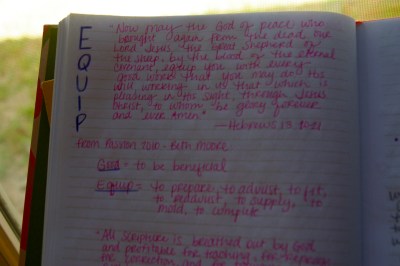 EQUIP
"Now may the God of peace who
brought again from the dead our
Lord Jesus, the great Shepherd of
the sheep, by the blood of the eternal
covenant, equip you with every-
good work that you may do His
will, working in us that which is
pleasing in His sight, through Jesus
Christ, to whom be glory forever
and ever. Amen."
—Hebrews 13:20-21
from Beth Moore
Good = to be beneficial
Equip = to prepare, to adjust, to fit,
to readjust, to supply, to
mold, to complete
"All Scripture is breathed out by God
and profitable for teaching, for reproof,
for correction and for